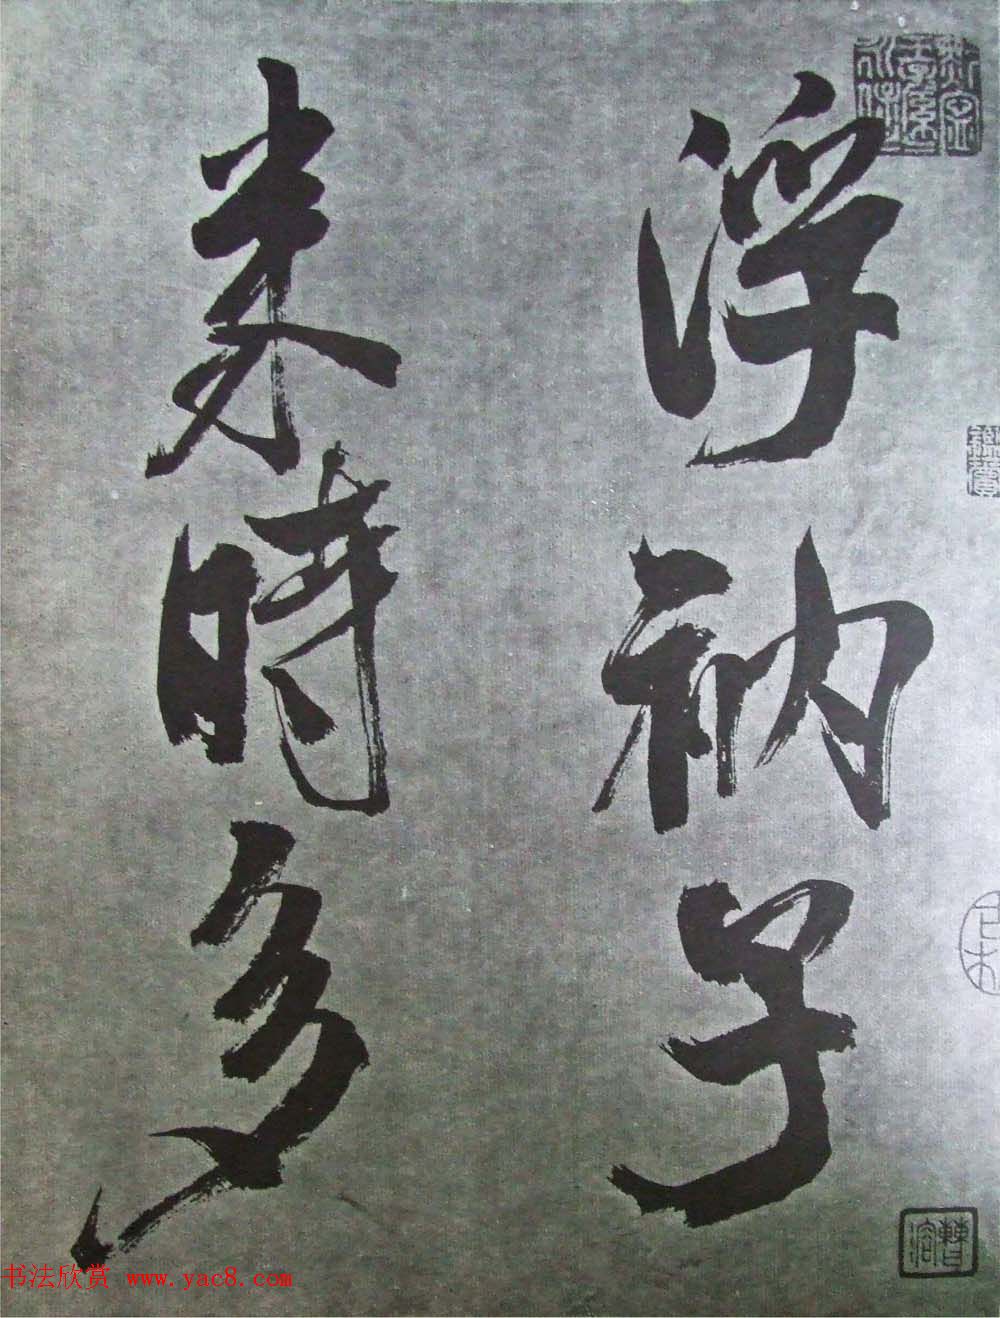 浮衲子
来時多
曹溶
书法欣赏 www.yac8.com